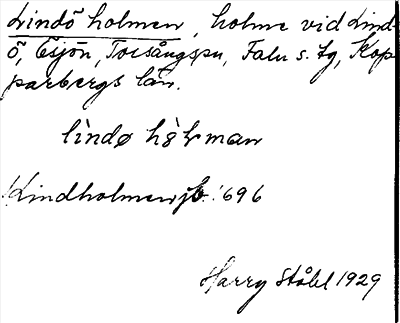 Lindöholmen, holme vid Lind-
ö, Ösjön, Torsångs sn, Falu s. tg, Kop-
parbergs län.
lìndø hò̀lman
Lindholmen jb. 1696
Harry Ståhl 1929